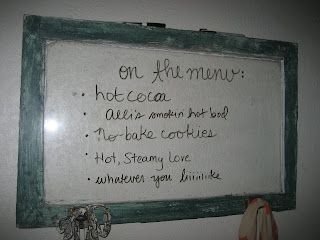 on the menu:
• hot cocoa
• alli's smokin hot bod
• No-bake cookies
• Hot, Steamy Love
• whatever you liiiiike